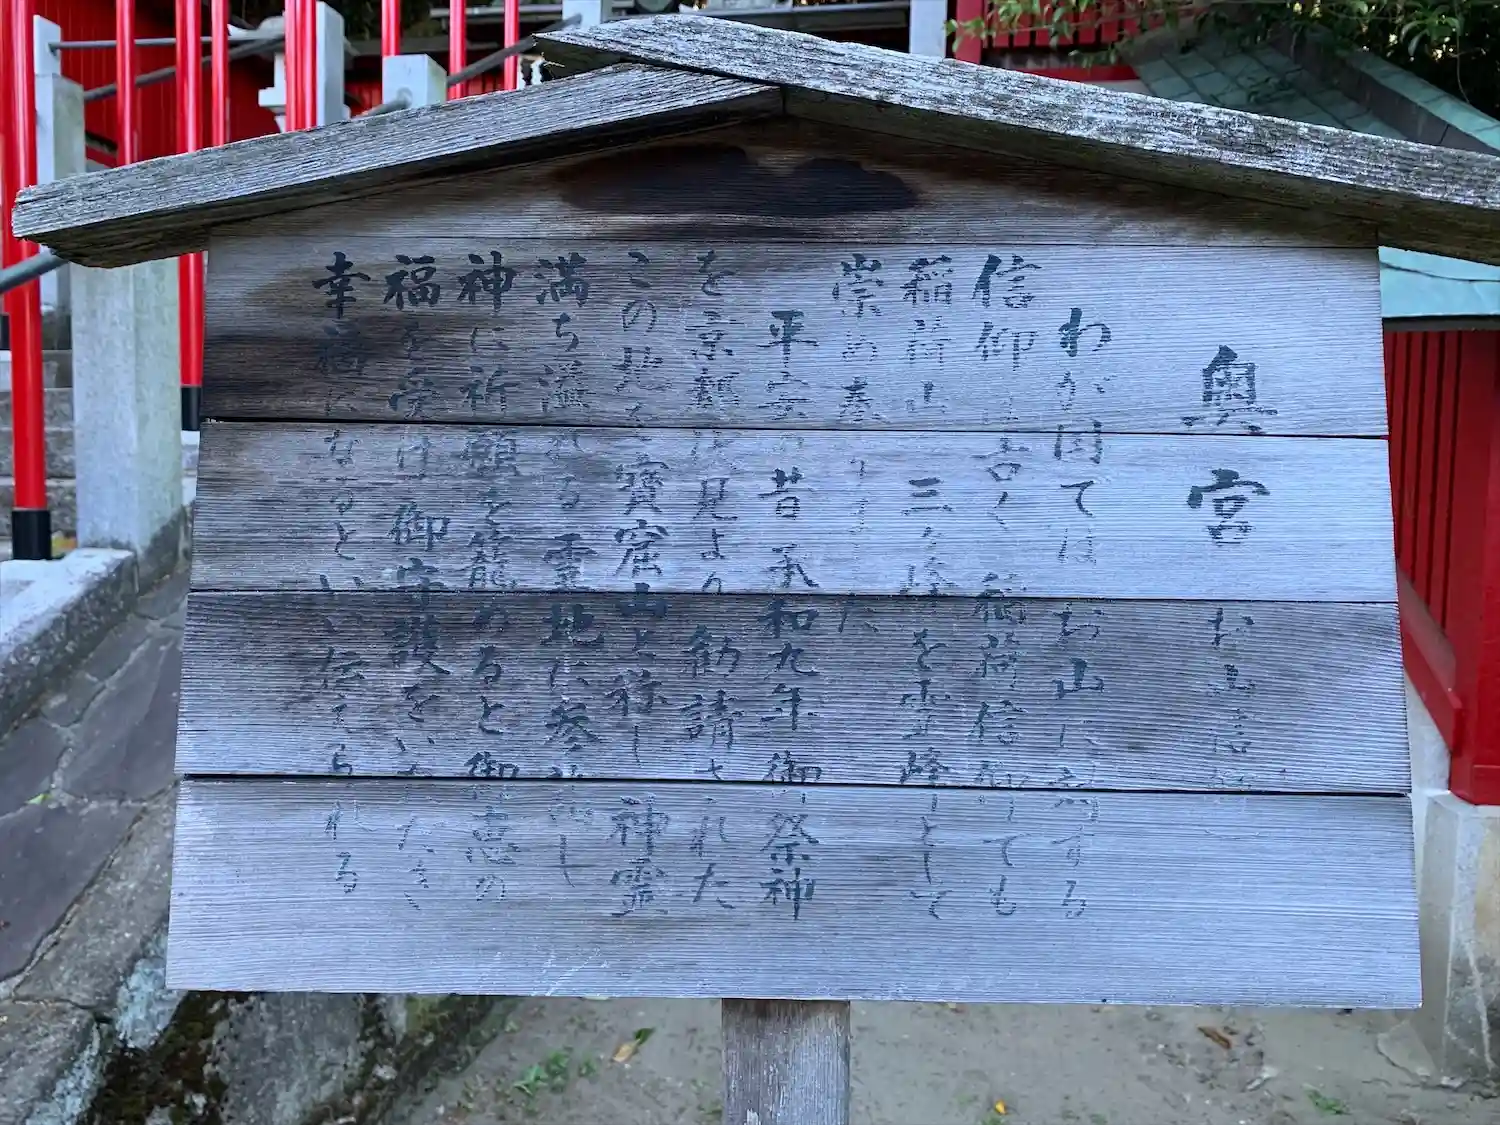 奥宮 お山信仰
わが国では お山に対する
信仰は古く 稲荷信仰ても
稲荷山 三ヶ峰を霊峰として
崇め奉りました
平安の昔 承和九年 御祭神
を京都伏見より勧請された
この地を寳窟山と称し 神霊
満ち溢れる霊地に参拝し
神に祈願を籠めると御神恵の
福を受け 御守護をいただき
幸福になるといい伝えられる